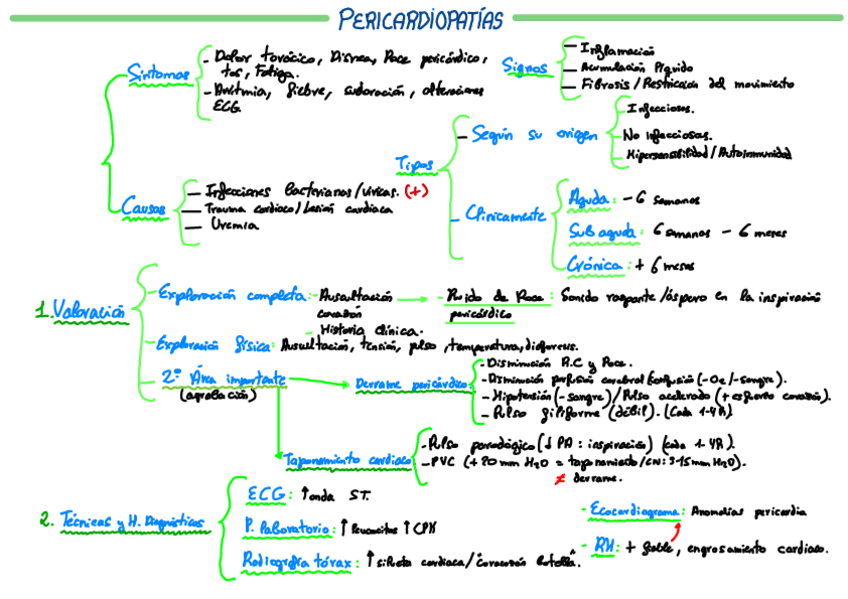 PERICARDIOPATÍAS
Síntomas
- Dolor torácico, Disnea, Roce pericárdico,
tos, Fatiga.
- Arritmia, fiebre, sudoración, alteraciones
ECG.
Signos
- Inflamación
- Acumulación líquido
- Fibrosis/Restricción del movimiento
Causas
- Infecciones bacterianas/víricas. (+)
- Trauma cardiaco/Lesión cardiaca
- Uremia
Tipos
- Según su origen
- Infecciosos.
- No infecciosas.
- Hipersensibilidad/Autoinmunidad
- Clínicamente
Aguda: - 6 semanas
Subaguda: 6 semanas - 6 meses
Crónica: + 6 meses
1. Valoración
- Exploración completa: - Auscultación
corazón
- Historia clínica.
- Ruido de Roce: Sonido raspante/áspero en la inspiración
pericárdico
- Exploración física: Auscultación, tensión, pulso, temperatura, diaforesis.
- 2º Área importante
Derrame pericárdico:
- Disminución R.C y Roce.
- Disminución perfusión cerebral (-O2/-sangre).
- Hipotensión (-sangre)/Pulso acelerado (+ esfuerzo corazón).
- Pulso filiforme (débil). (Cada 1-4 R).
Taponamiento cardiaco
- Pulso paradógico (↓ PA: inspiración) (cada 1-4R).
- PVC (+20 mm H2O = taponamiento/CN: 3-15mm H2O).
≠ derrame.
2. Técnicas y H. Diagnósticas
ECG: ↑ onda ST.
P. Laboratorio: ↑ leucocitos ↑ CPK
Radiografía tórax: ↑ silueta cardiaca/"corazón botella".
- Ecocardiograma: Anomalías pericardio
- RM: + fiable, engrosamiento cardiaco.